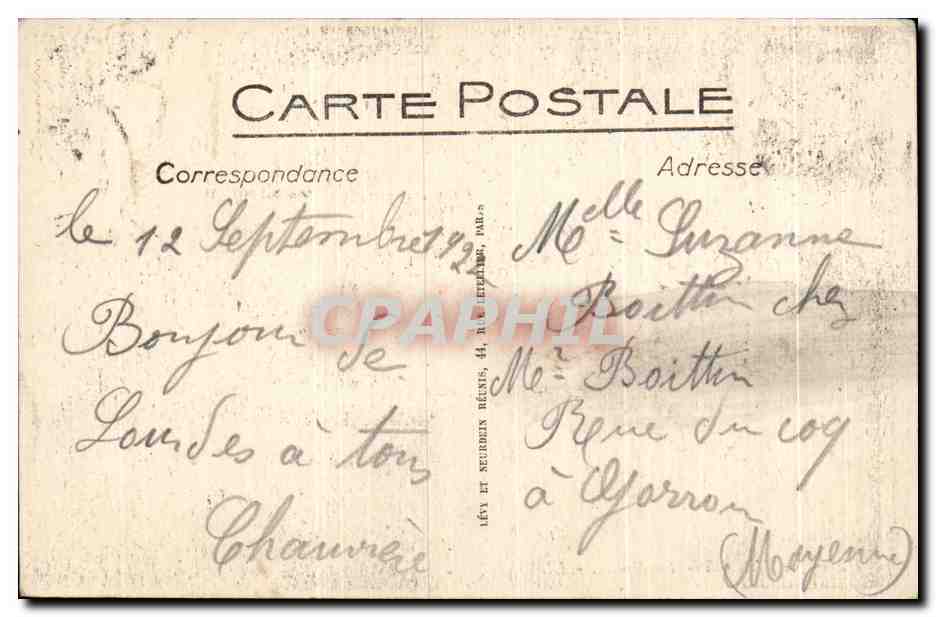 CARTE POSTALE
Correspondance
le 12 Septembre 1922
Bonjour de
Lourdes à tous
Chauvière
LÉVY ET NEURDEIN RÉUNIS, 44, RUE LETELLIER, PARIS
Adresse
Melle Suzanne
Boittin chez
Mr Boittin
Rue du coq
à Gorron
(Mayenne)
CPAPHIL